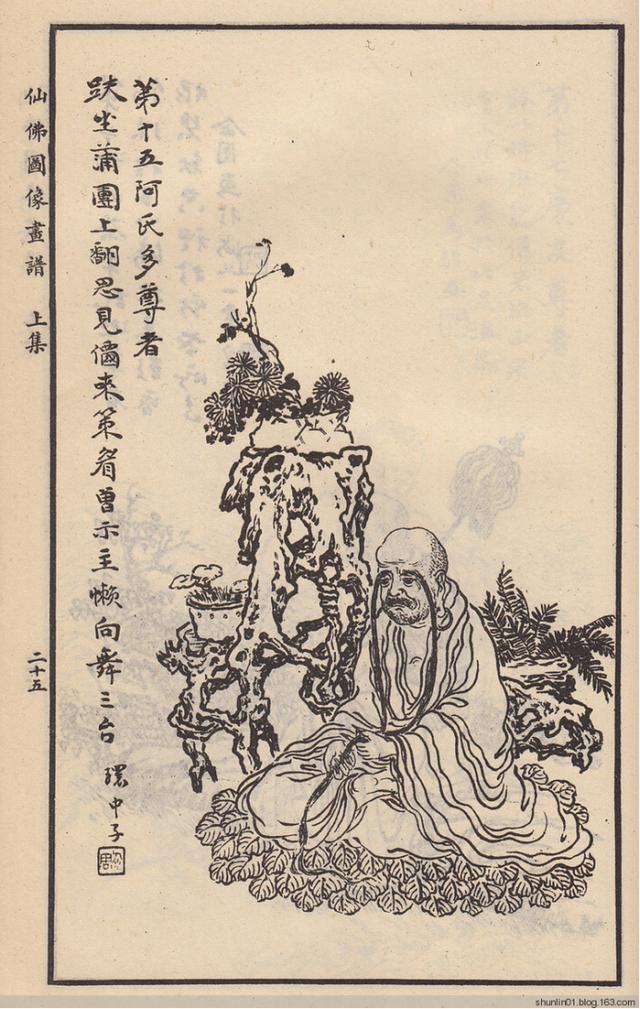 第十五阿氏多尊者
趺坐蒲團上翻思見儞來策曾示主懶向舞三台
環中子
仙佛圖像畫譜 上集
二十五
shunlin01.blog.163.com